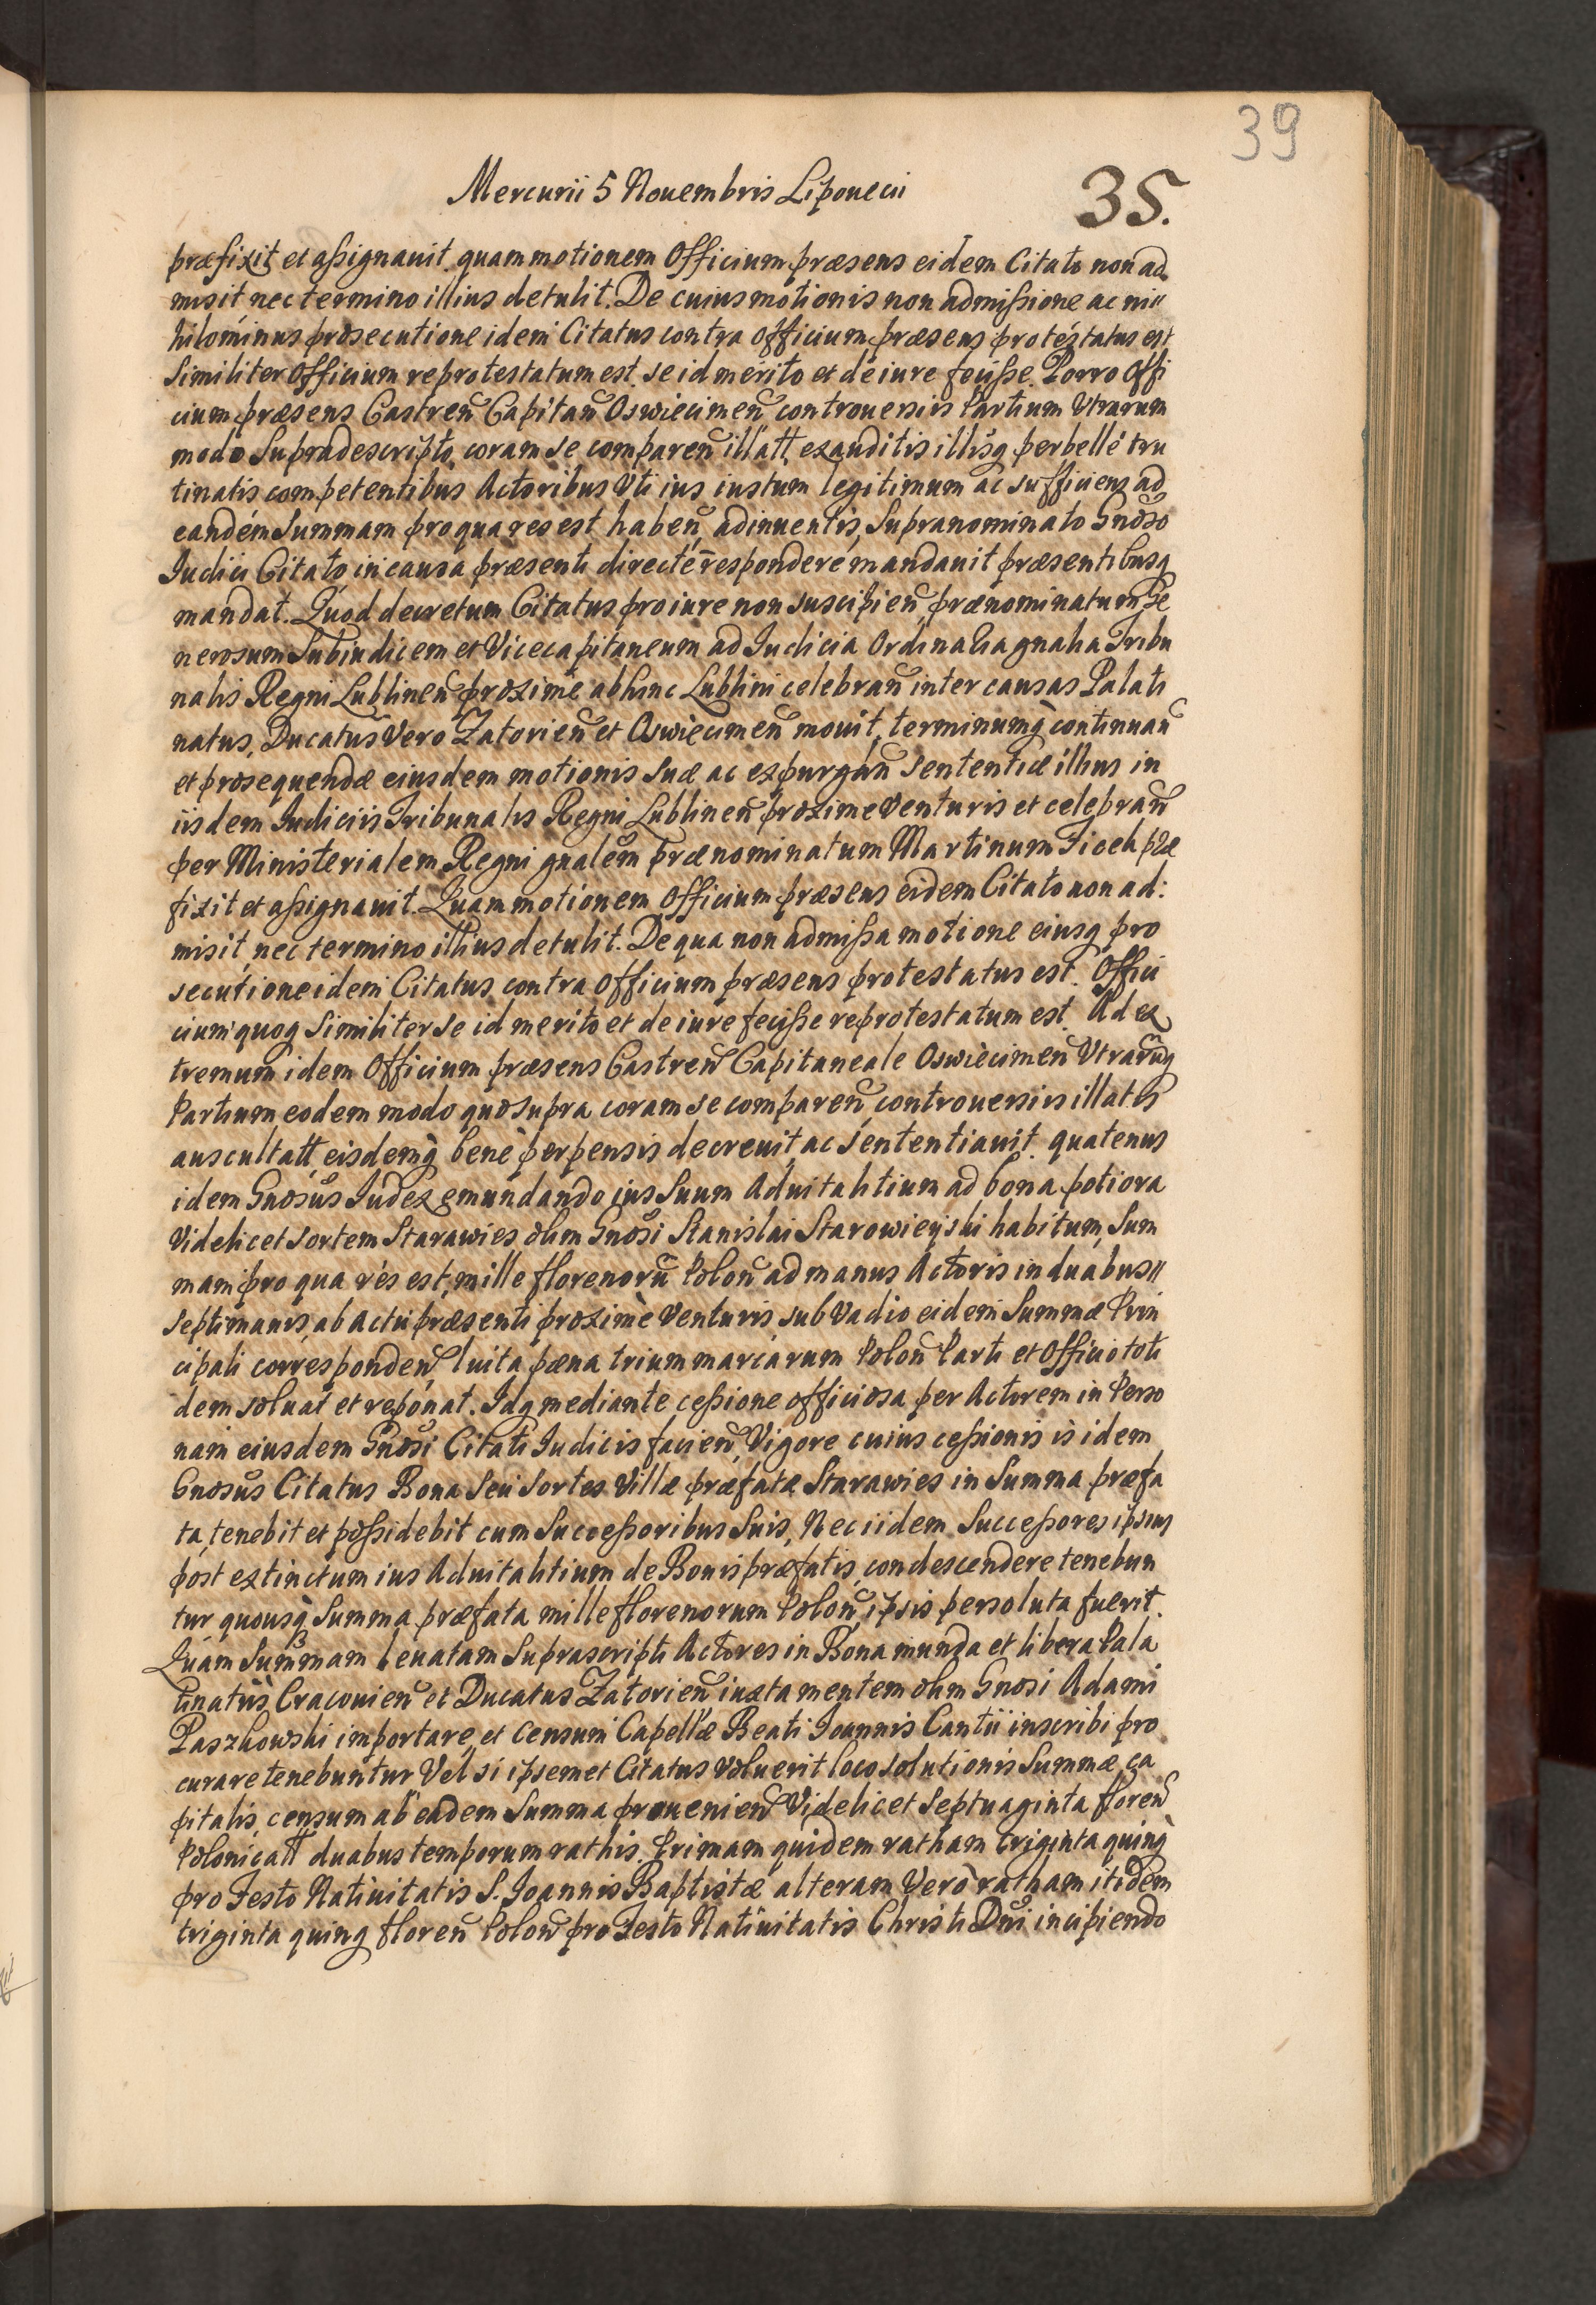 39
Mercurii 5 Nouembris Lipouecii
35.
præfixit et assignauit. quam motionem Officium præsens eidem Citato non ad
misit nec termino illius detulit. De cuius motionis non admissione ac ni
hilominus prosecutione idem Citatus contra Officium præsens protestatus est
Similiter Officium reprotestatum est. se id merito et de iure fecisse. Porro Offi
cium præsens Castren̄ Capitan̄ Oswiecimen̄ controuersiis Partium Utrarum
modo Supradescripto, coram se comparen̄ illatt, exauditis illisq perbellé tru
tinatis competentibus Actoribus Uti ius iustum legitimum ac sufficiens ad
eandem Summam pro qua res est haben̄, adinuentis, Supranominato Gnoso
Iudici Citato in causa præsenti directé respondere mandauit præsentibusq
mandat. Quod decretum Citatus pro iure non suscipien̄ prænominatum Ge
nerosum Subiudicem et Vicecapitaneum ad Iudicia Ordinaria gnalia Tribu
nalis Regni Lublinen̄ proxime abhinc Lublini celebran̄ inter causas Palati
natus, Ducatus Vero Zatorien̄ et Oswiecimen̄ mouit, terminumq continuan̄
et prosequendæ eiusdem motionis suæ ac expurgan̄ sententiæ illius in
iisdem Iudiciis Tribunalis Regni Lublinen̄ proxime Venturis et celebran̄
per Ministerialem Regni gnalem prænominatum Martinum Ficek præ
fixit et assignauit. Quam motionem Officium præsens eidem Citato non ad:
misit, nec termino illius detulit. De qua non admissa motione eiusq pro
secutione idem Citatus contra Officium præsens protestatus est. Offici
cium quoq Similiter se id merito et de iure fecisse reprotestatum est. Ad ex
tremum idem Officium præsens Castren̄ Capitaneale Oswiecimen̄ Utrarūq
Partium eodem modo quo supra coram se comparen̄ controuersiis illatis
auscultatt, eisdemq bene perpensis decreuit, ac sententiauit. quatenus
idem Gnosus Iudex emundando ius Suum Aduitalitium ad bona potiora
Videlicet sortem Starawies olim Gnosi Stanislai Starowieyski habitum, Sum
mam pro qua res est, mille florenorū Polon̄ ad manus Actoris in duabus
Septimanis, ab actu præsenti proxime Venturis, sub Vadio eidem Summæ Prin
cipali corresponden̄ luita pæna trium marcarum Polon̄ Parti et Officio toti
dem soluat et reponat. Idq mediante cessione officiosa per Actorem in Perso
nam eiusdem Gnosi Citati Iudicis facien̄, Vigore cuius cessionis is idem
Gnosus Citatus Bona Seu Sortes Villæ præfatæ Starawies in Summa præfa
ta, tenebit et possidebit cum Successoribus Suis, Nec iidem Successores ipsius
post extinctum ius Aduitalitium de Bonis præfatis, condescendere tenebun
tur quousq Summa præfata mille florenorum Polon̄, ipsis persoluta fuerit.
Quam Summam leuatam Suprascripti Actores in Bona munda et libera Pala
tinatus Cracouien̄ et Ducatus Zatorien̄ iuxta mentem olim Gnosi Adami
Paszkowski importare, et Censum Capellæ Beati Ioannis Cantii inscribi pro
curare tenebuntur, Vel si ipsemet Citatus Voluerit loco solutionis Summæ ca
pitalis, censum ab eadem Summa prouenien̄ Videlicet Septuaginta floren̄
Polonicatt duabus temporum rathis, Primam quidem ratham triginta quinq
pro Festo Natiuitatis S. Ioannis Baptistæ alteram Vero ratham itidem
triginta quinq floren̄ Polon̄ pro Festo Natiuitatis Christi Dni incipiendo